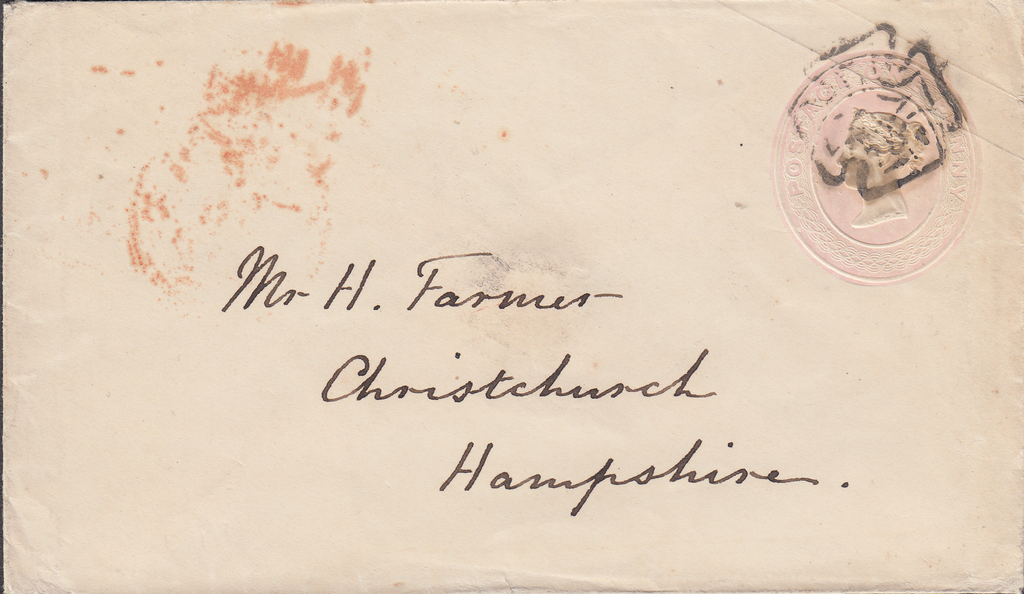 POSTAGE ONE PENNY
Mr H. Farmer
Christchurch
Hampshire.